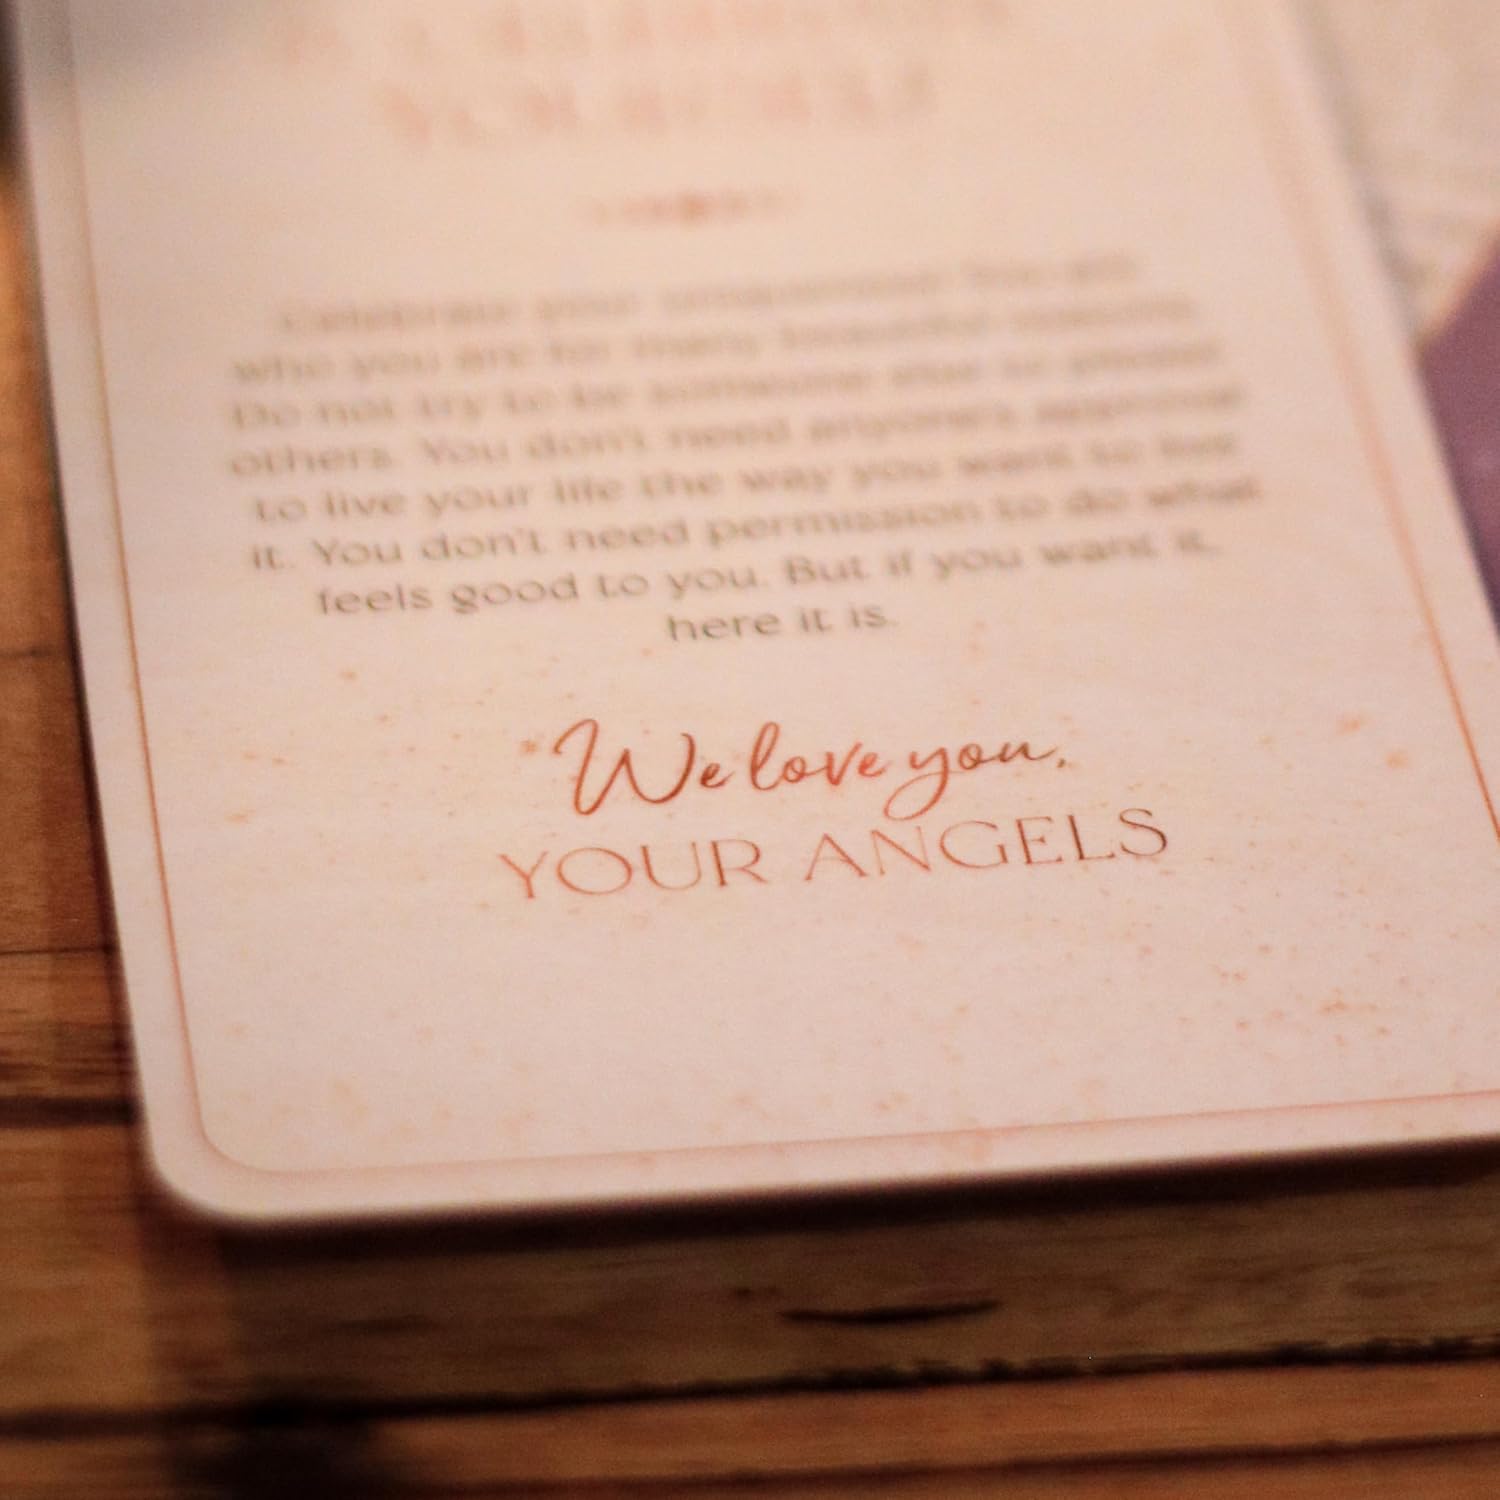 Celebrate your uniqueness! You are
who you are for many beautiful reasons.
Do not try to be someone else to please
others. You don't need anyone's approval
to live your life the way you want to live
it. You don't need permission to do what
feels good to you. But if you want it,
here it is.
We love you,
YOUR ANGELS